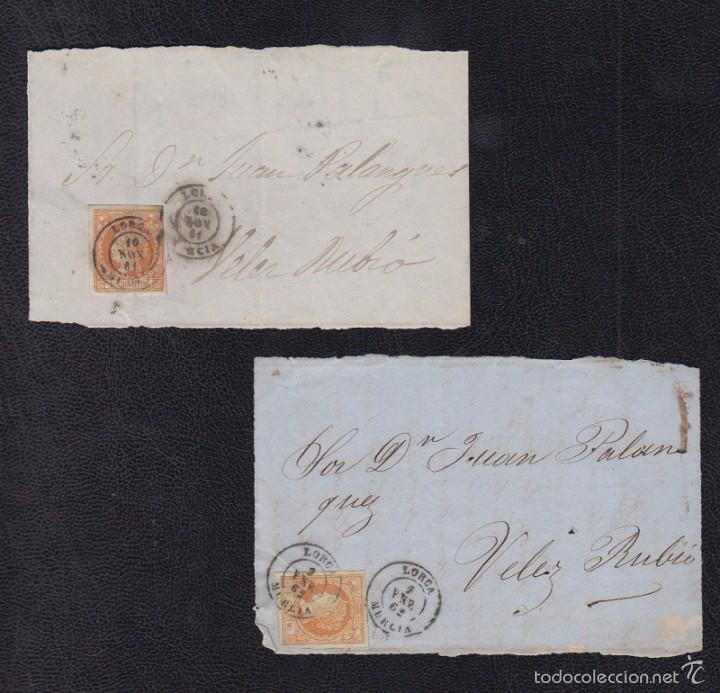 Sr. Dn Juan Palanques
Velez Rubio
LORCA
10
NOV
61
LOR
10
NOV
61
RCIA
Sor Dn Juan Palan
quez
Velez Rubio
LORCA
2
ENE
62
MURCIA
LORCA
2
ENE.
62
MURCIA
todocoleccion.net